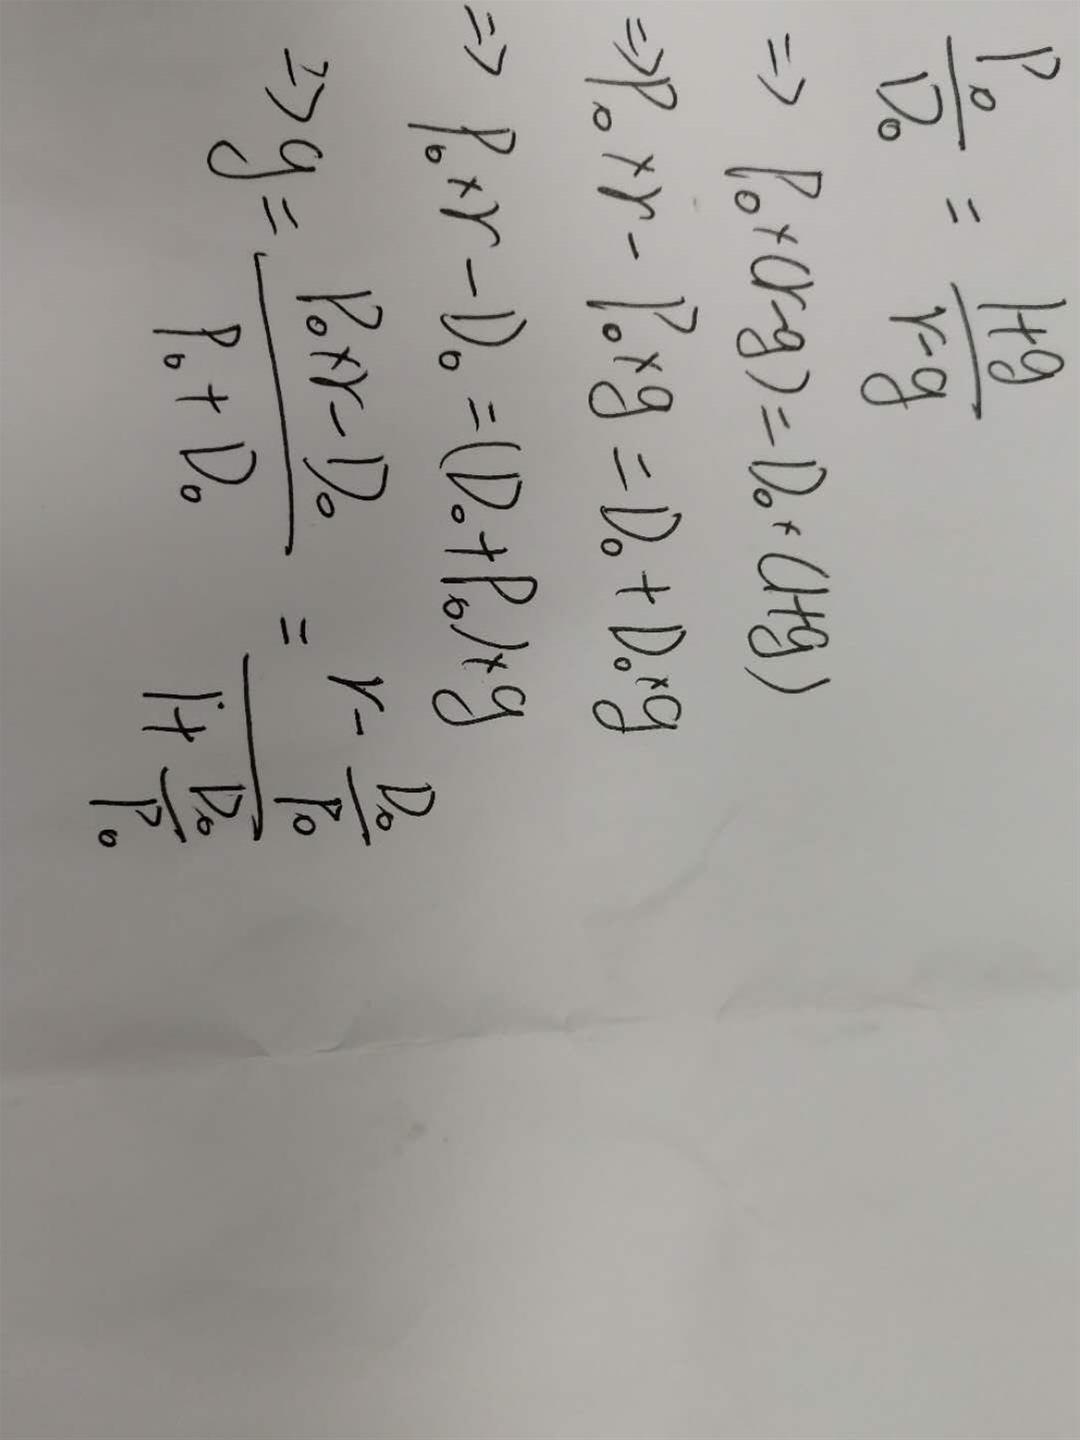 P₀/D₀ = 1+g/r-g
=> P₀×(r-g) = D₀×(1+g)
=> P₀×r - P₀×g = D₀ + D₀×g
=> P₀×r - D₀ = (D₀+P₀)×g
=> g = P₀×r - D₀/P₀ + D₀ = r - D₀/P₀/1+ D₀/P₀